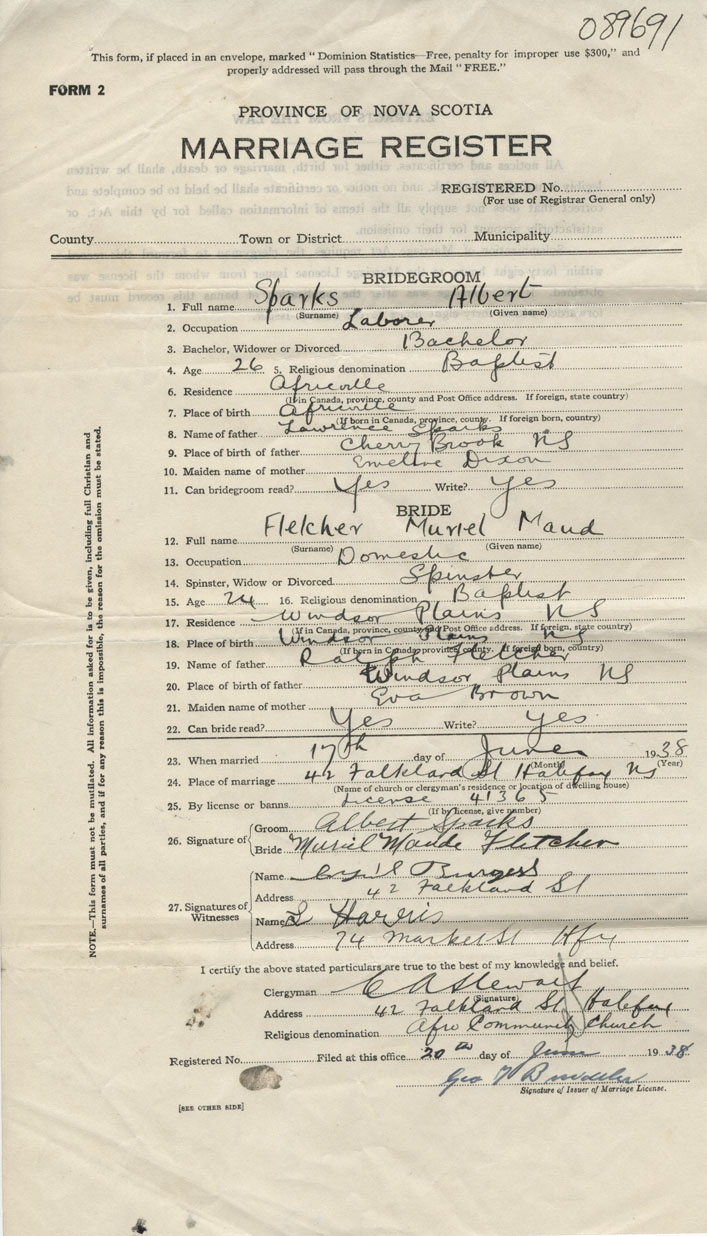 089691
This form, if placed in an envelope, marked "Dominion Statistics—Free, penalty for improper use $300," and
properly addressed will pass through the Mail "FREE."
FORM 2
PROVINCE OF NOVA SCOTIA
MARRIAGE REGISTER
REGISTERED No.
(For use of Registrar General only)
County Town or District Municipality
BRIDEGROOM
1. Full name Sparks Albert
(Surname) (Given name)
2. Occupation Laborer
3. Bachelor, Widower or Divorced Bachelor
4. Age 26 5. Religious denomination Baptist
6. Residence Africville
(If in Canada, province, county and Post Office address. If foreign, state country)
7. Place of birth Africville
(If born in Canada, province, county. If foreign born, country)
8. Name of father Lawrence Sparks
9. Place of birth of father Cherry Brook NS
10. Maiden name of mother Emeline Dixon
11. Can bridegroom read? Yes Write? Yes
BRIDE
12. Full name Fletcher Muriel Maud
(Surname) (Given name)
13. Occupation Domestic
14. Spinster, Widow or Divorced Spinster
15. Age 24 16. Religious denomination Baptist
17. Residence Windsor Plains NS
(If in Canada, province, county and Post Office address. If foreign, state country)
18. Place of birth Windsor Plains NS
(If born in Canada, province, county. If foreign born, country)
19. Name of father Ralph Fletcher
20. Place of birth of father Windsor Plains NS
21. Maiden name of mother Eva Brown
22. Can bride read? Yes Write? Yes
23. When married 17th day of June 1938
(Month) (Year)
24. Place of marriage 42 Falkland St Halifax NS
(Name of church or clergyman's residence or location of dwelling house)
25. By license or banns License 41365
(If by license, give number)
26. Signature of Groom Albert Sparks
Bride Muriel Maude Fletcher
27. Signatures of Witnesses
Name Cyril Burgess
Address 42 Falkland St
Name L Harris
Address 74 Market St Hfx
I certify the above stated particulars are true to the best of my knowledge and belief.
Clergyman C A Stewart
(Signature)
Address 42 Falkland St Halifax
Religious denomination Afro Community Church
Registered No. Filed at this office 20th day of June 1938
Geo
Signature of Issuer of Marriage License.
[SEE OTHER SIDE]
NOTE.—This form must not be mutilated. All information asked for is to be given, including full Christian and
surnames of all parties, and if for any reason this is impossible, the reason for the omission must be stated.